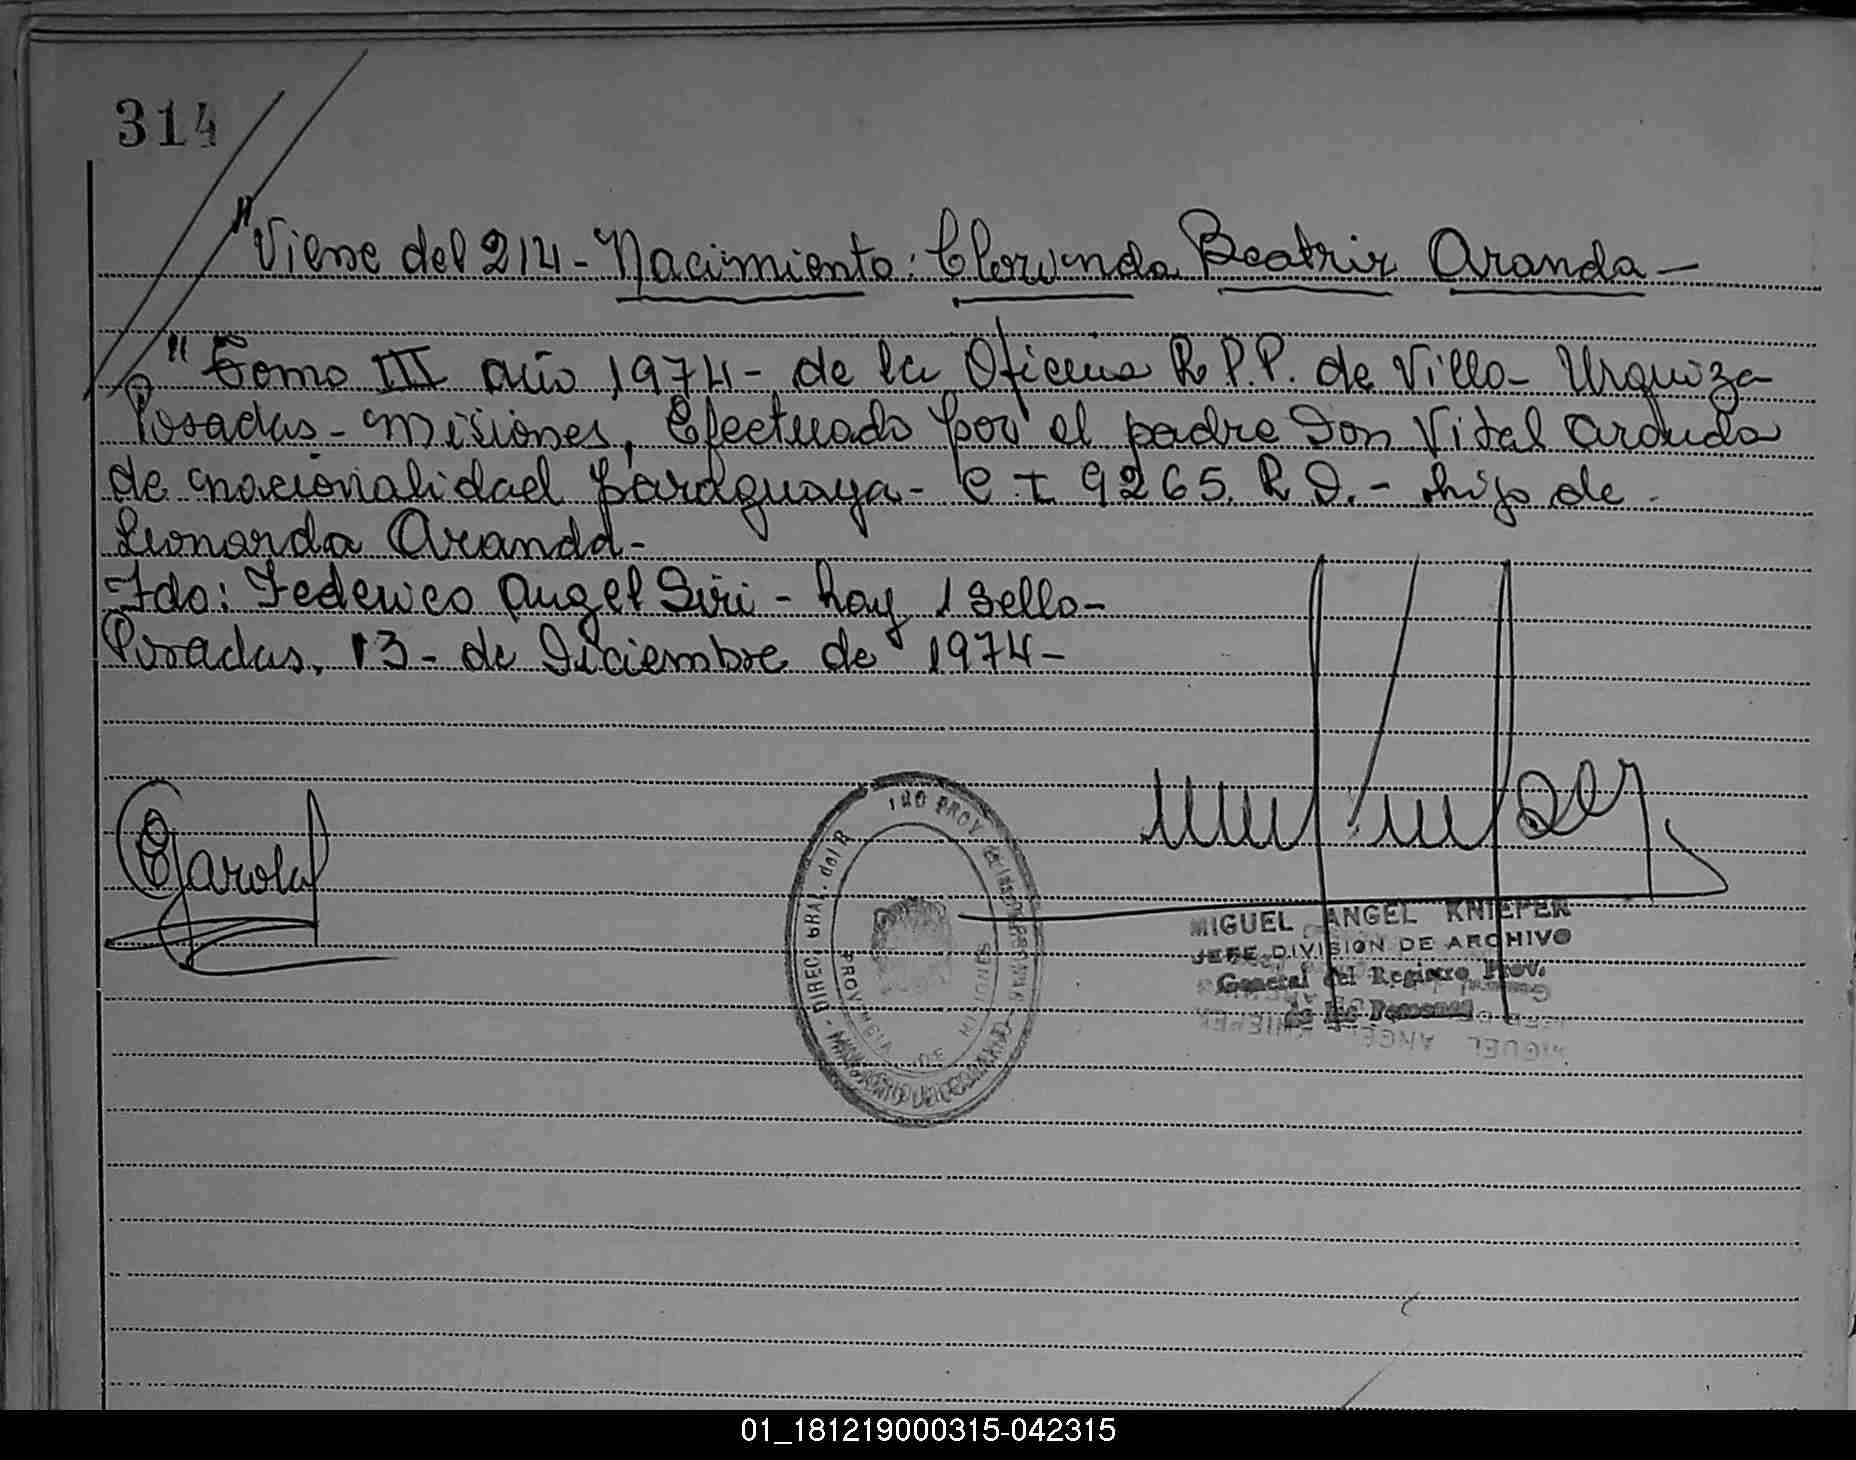 314
"Viene del 214- Nacimiento: Clorinda Beatriz Aranda-
" Tomo III año 1974- de la Oficina R.P.P. de Villa- Urquiza
Posadas- Misiones, Efectuado por el padre Don Vital Aranda
de nacionalidad Paraguaya- C.I 9265. R.D.- hijo de-
Leonarda Aranda-
Fdo: Federico Angel Siri- hay 1 Sello-
Posadas, 13- de Diciembre de 1974-
MIGUEL ANGEL KNIEPER
JEFE DIVISION DE ARCHIVO
General del Registro Prov.
de las Personas
PROVINCIA DE MISIONES
01_181219000315-042315